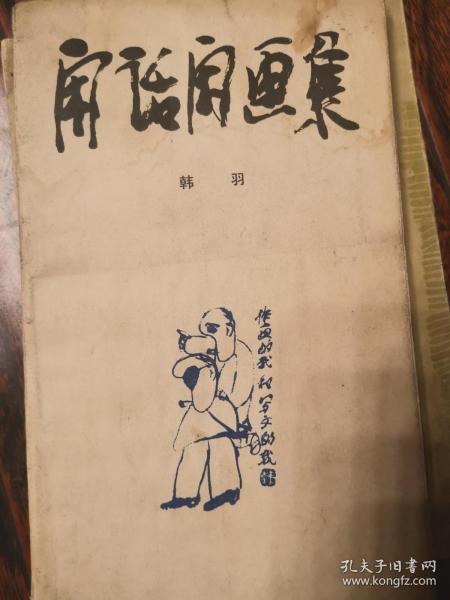 闲话闲画集
韩 羽
作画的我和写文的我
孔夫子旧书网
www.kongfz.com